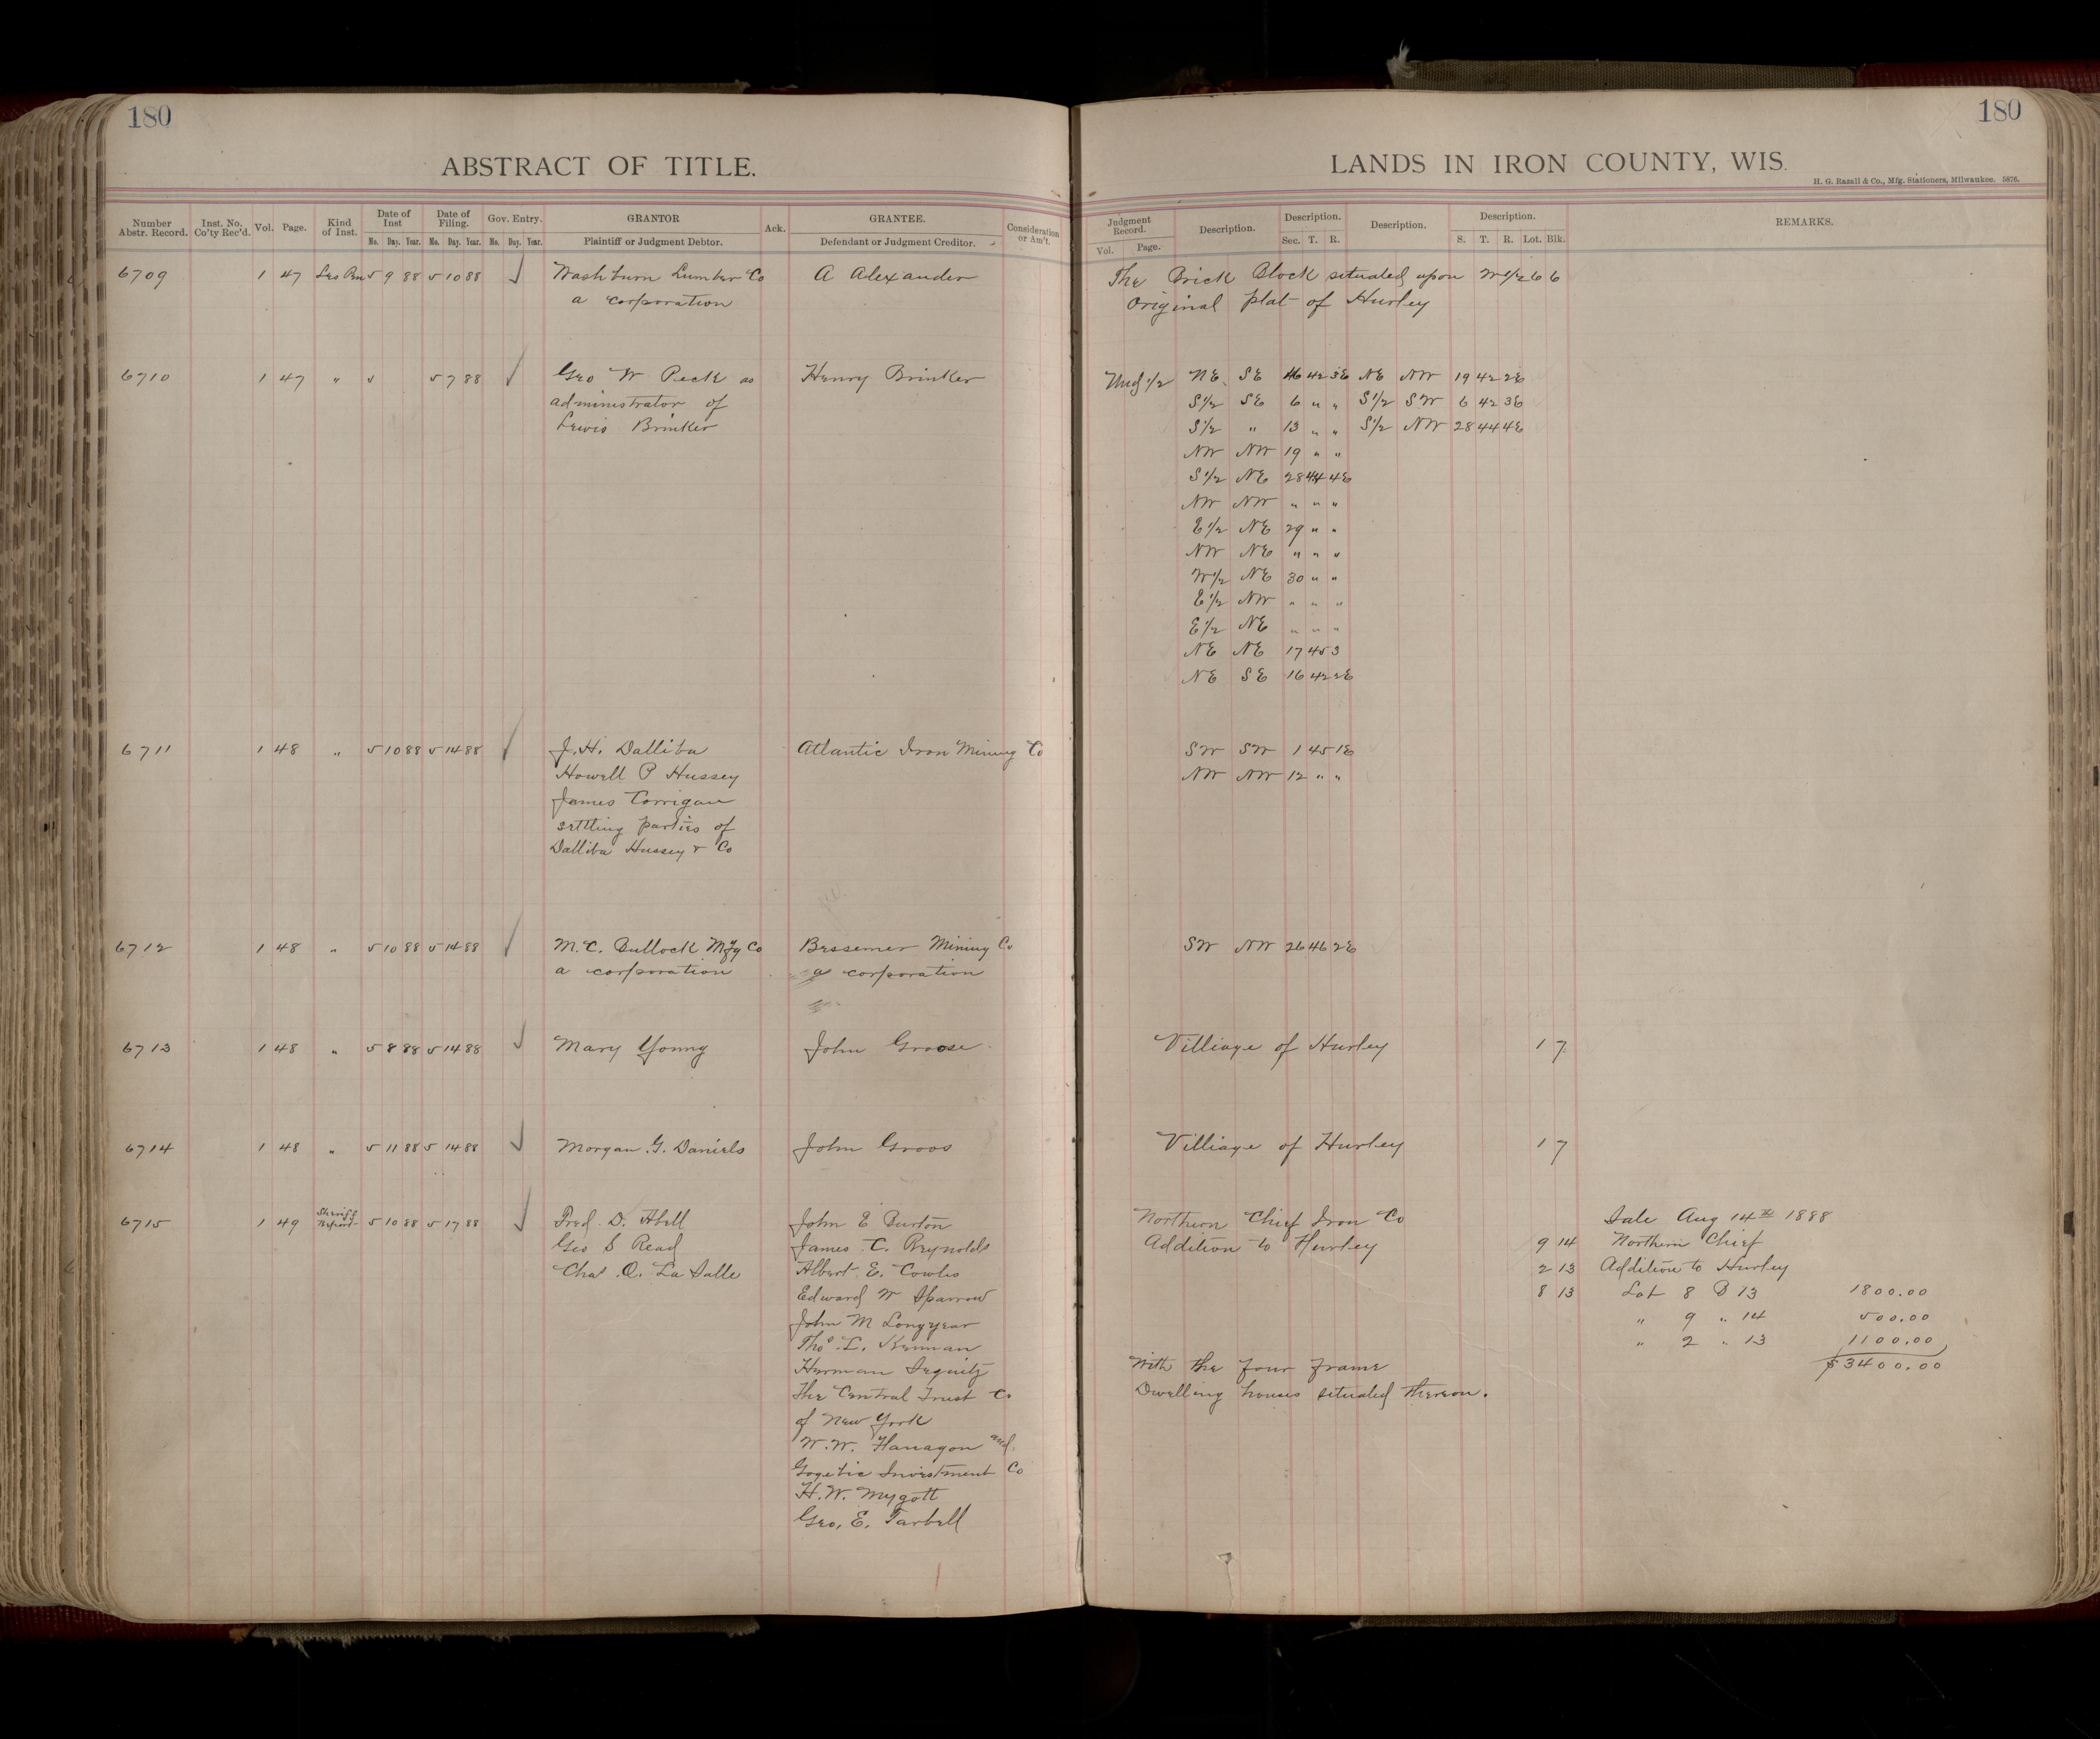 180
180
ABSTRACT OF TITLE.
LANDS IN IRON COUNTY, WIS.
H. G. Razall & Co., Mfg. Stationers, Milwaukee. 5876.
Number Abstr. Record. Inst. No. Co'ty Rec'd. Vol. Page. Kind of Inst. Date of Inst Date of Filing. Gov. Entry. GRANTOR Ack. GRANTEE. Consideration or Am't.
Mo. Day. Year. Mo. Day. Year. No. Day. Year. Plaintiff or Judgment Debtor. Defendant or Judgment Creditor.
Judgment Record. Description. Description. Description. Description. REMARKS.
Vol. Page. Sec. T. R. S. T. R. Lot. Blk.
6709 1 47 Les Pen 5 9 88 5 10 88 Washburn Lumber Co A Alexander The Brick Block situated upon W1/2 6 6
a corporation Original plat of Hurley
6710 1 47 " " 5 7 88 Geo W Peck as Henry Brinker Und 1/2 NE SE 16 42 3E NE NW 19 42 2E
administrator of S1/2 SE 6 " " S1/2 SW 6 42 3E
Lewis Brinker S1/2 " 13 " " S1/2 NW 28 44 4E
NW NW 19 " "
S1/2 NE 28 44 4E
NW NW " " "
E1/2 NE 29 " "
NW NE " " "
W1/2 NE 30 " "
E1/2 NW " " "
E1/2 NE " " "
NE NE 17 45 3
NE SE 16 42 2E
6711 1 48 " 5 10 88 5 14 88 J. H. Dalliba Atlantic Iron Mining Co SW SW 1 45 1E
Howell P Hussey NW NW 12 " "
James Corrigan
settling parties of
Dalliba Hussey & Co
6712 1 48 " 5 10 88 5 14 88 M. C. Bullock Mfg Co Bessemer Mining Co SW NW 26 46 2E
a corporation a corporation
6713 1 48 " 5 8 88 5 14 88 Mary Young John Groose Villiage of Hurley 1 7
6714 1 48 " 5 11 88 5 14 88 Morgan G. Daniels John Groos Villiage of Hurley 1 7
6715 1 49 Sheriff Report 5 10 88 5 17 88 Fred. D. Abell John E Burton Northern Chief Iron Co Sale Aug 14th 1888
Geo S Read James C. Reynolds Addition to Hurley 9 14 Northern Chief
Chas. Q. La Salle Albert E. Cowles 2 13 Addition to Hurley
Edward W Sparrow 8 13 Lot 8 B 13 1800.00
John M Longyear " 9 " 14 500.00
Thos. L. " 2 " 13 1100.00
Herman With the four frame $3400.00
The Central Trust Co Dwelling houses situated thereon.
of New York
W. W. Flanagon and
Gogebic Investment Co
H. W. Mygott
Geo. E. Tarbell